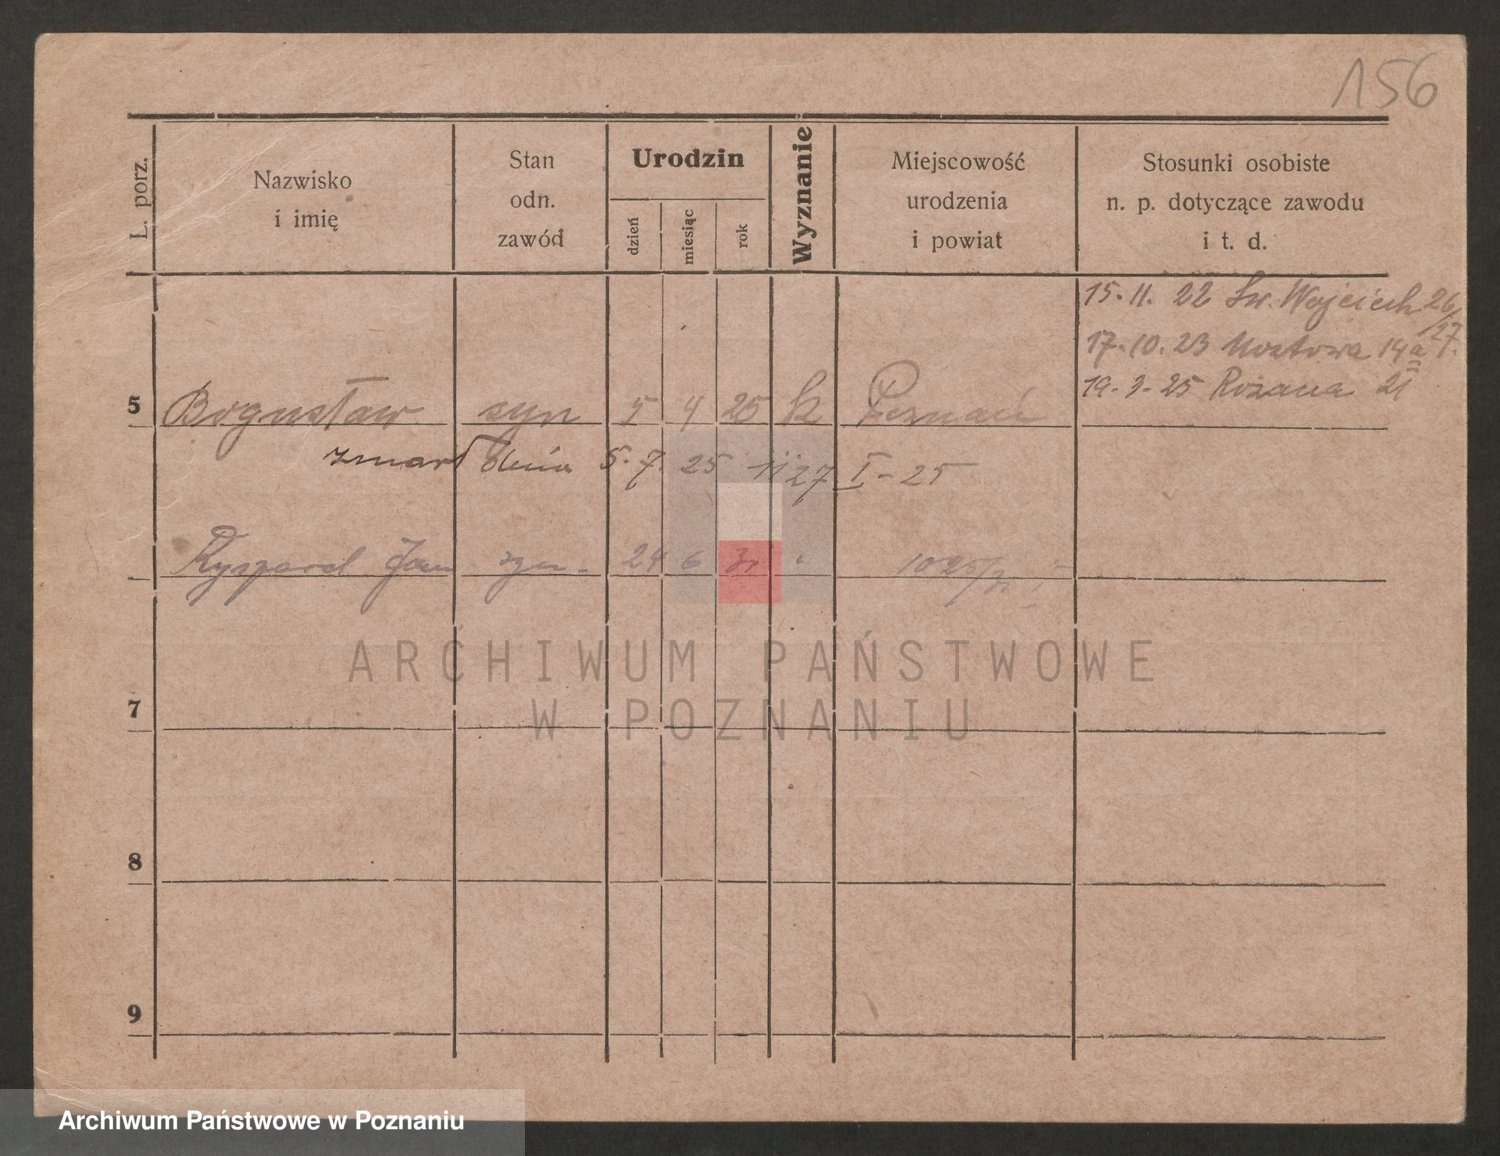 156
L. porz.
Nazwisko
i imię
Stan
odn.
zawód
Urodzin
dzień
miesiąc
rok
Wyznanie
Miejscowość
urodzenia
i powiat
Stosunki osobiste
n. p. dotyczące zawodu
i t. d.
15.11.22 Św. Wojciech 26/27.
17.10.23 Mostowa 14a
19.3.25 Różana 21
5 Bogusław syn 5 4 25 k Poznań
zmarł dnia 5.7.25
Ryszard Jan syn 24 6
ARCHIWUM PAŃSTWOWE
W POZNANIU
7
8
9
Archiwum Państwowe w Poznaniu